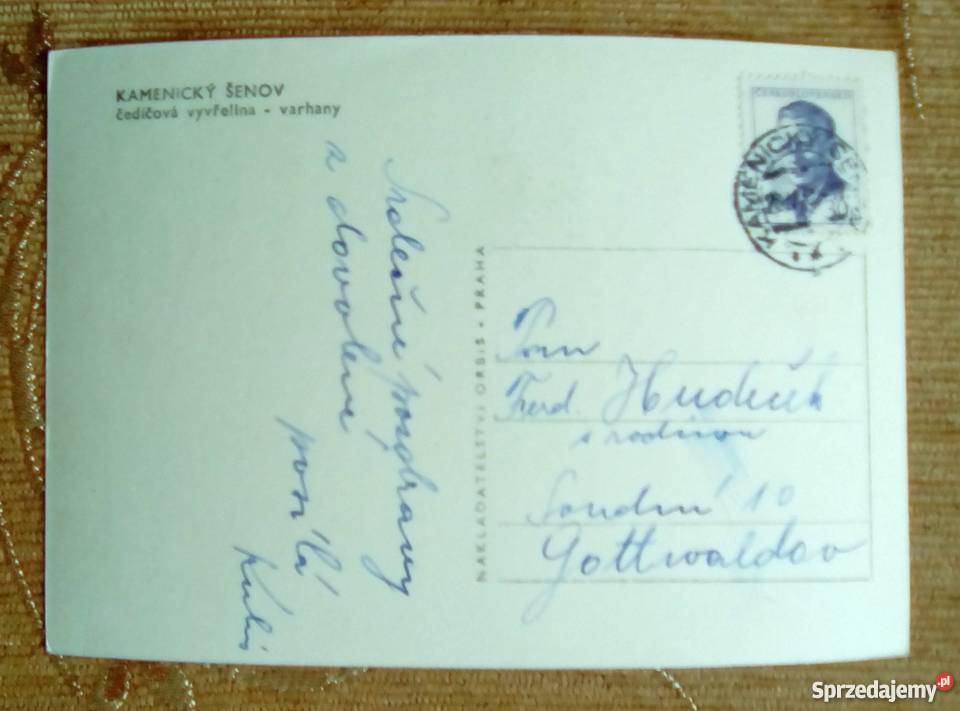 KAMENICKÝ ŠENOV
čedičová vyvřelina - varhany
ČESKOSLOVENSKO
KAMENICKÝ ŠE
Srdeční pozdravy
z dovolené
posílá
NAKLADATELSTVÍ ORBIS - PRAHA
Pan
Ferd. Hudeček
s rodinou
Soudní 10
Gottwaldov
Sprzedajemy.pl